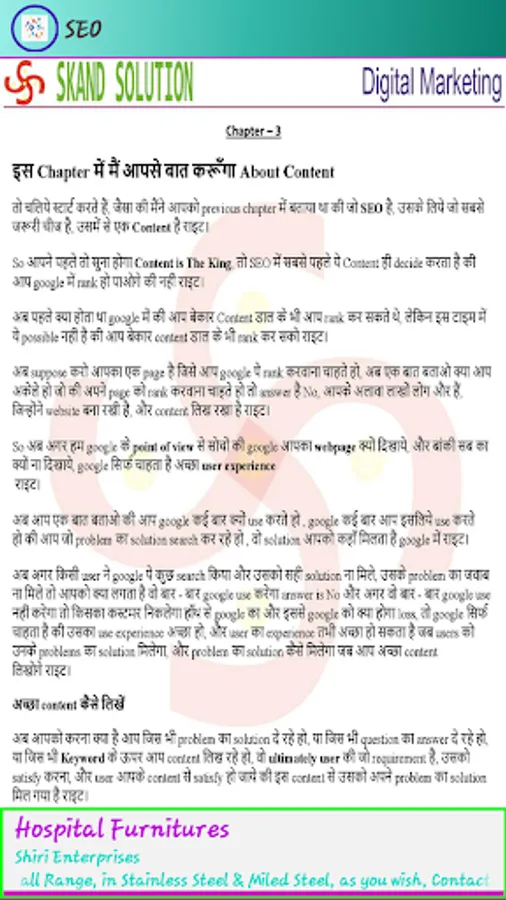 SEO
SKAND SOLUTION
Digital Marketing
Chapter – 3
इस Chapter में मैं आपसे बात करूँगा About Content
तो चलिये स्टार्ट करते हैं, जैसा की मैंने आपको previous chapter में बताया था की जो SEO है, उसके लिये जो सबसे
जरूरी चीज है, उसमें से एक Content है राइट।
So आपने पहले तो सुना होगा Content is The King, तो SEO में सबसे पहले ये Content ही decide करता है की
आप google में rank हो पाओगे की नही राइट।
अब पहले क्या होता था google में की आप बेकार Content डाल के भी आप rank कर सकते थे, लेकिन इस टाइम में
ये possible नही है की आप बेकार content डाल के भी rank कर सको राइट।
अब suppose करो आपका एक page है जिसे आप google पे rank करवाना चाहते हो, अब एक बात बताओ क्या आप
अकेले हो जो की अपने page को rank करवाना चाहते हो तो answer है No, आपके अलावा लाखों लोग और हैं,
जिन्होने website बना रखी है, और content लिख रखा है राइट।
So अब अगर हम google के point of view से सोचों की google आपका webpage क्यों दिखाये, और बांकी सब का
क्यों ना दिखाये, google सिर्फ चाहता है अच्छा user experience
राइट।
अब आप एक बात बताओ की आप google कई बार क्यों use करते हो , google कई बार आप इसलिये use करते
हो की आप जो problem का solution search कर रहे हो , वो solution आपको कहाँ मिलता है google में राइट।
अब अगर किसी user ने google पे कुछ search किया और उसको सही solution ना मिले, उसके problem का जवाब
ना मिले तो आपको क्या लगता है वो बार - बार google use करेगा answer is No और अगर वो बार - बार google use
नही करेगा तो किसका कस्टमर निकलेगा हॉथ से google का और इससे google को क्या होगा loss, तो google सिर्फ
चाहता है की उसका use experience अच्छा हो, और user का experience तभी अच्छा हो सकता है जब users को
उनके problems का solution मिलेगा, और problem का solution कैसे मिलेगा जब आप अच्छा content
लिखोगे राइट।
अच्छा content कैसे लिखें
अब आपको करना क्या है आप जिस भी problem का solution दे रहे हो, या जिस भी question का answer दे रहे हो,
या जिस भी Keyword के ऊपर आप content लिख रहे हो, वो ultimately user की जो requirement है, उसको
satisfy करना, और user आपके content से satisfy हो जाये की इस content से उसको अपने problem का solution
मिल गया है राइट।
Hospital Furnitures
Shiri Enterprises
all Range, in Stainless Steel & Miled Steel, as you wish, Contact